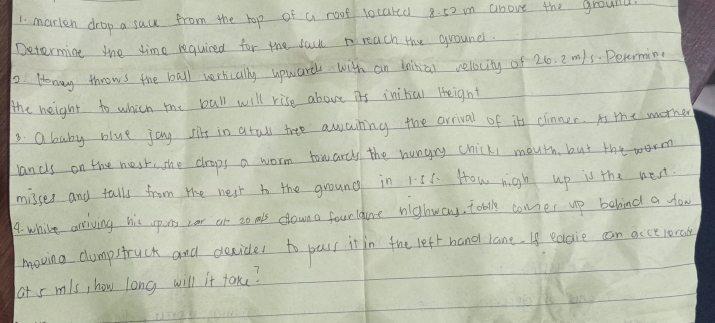 1. marlen drop a sack from the top of a roof located 8.52 m above the ground.
Determine the time required for the sack to reach the ground.
2. throws the ball vertically upwards with an initial velocity of 26.2 m/s. Determine
the height to which the ball will rise above its initial Height
3. a baby blue jay sits in a tall tree awaiting the arrival of its dinner. As the mother
lands on the nest, she drops a worm towards the hungry chick, mouth, but the worm
misses and falls from the nest to the ground in 1.5s. How high up is the nest.
4. while driving his sports car at 20 m/s down a four lane highway, comes up behind a slow
moving dumpstruck and decides to pass it in the left hand lane. If eddie can accelerate
at 5 m/s, how long will it take?